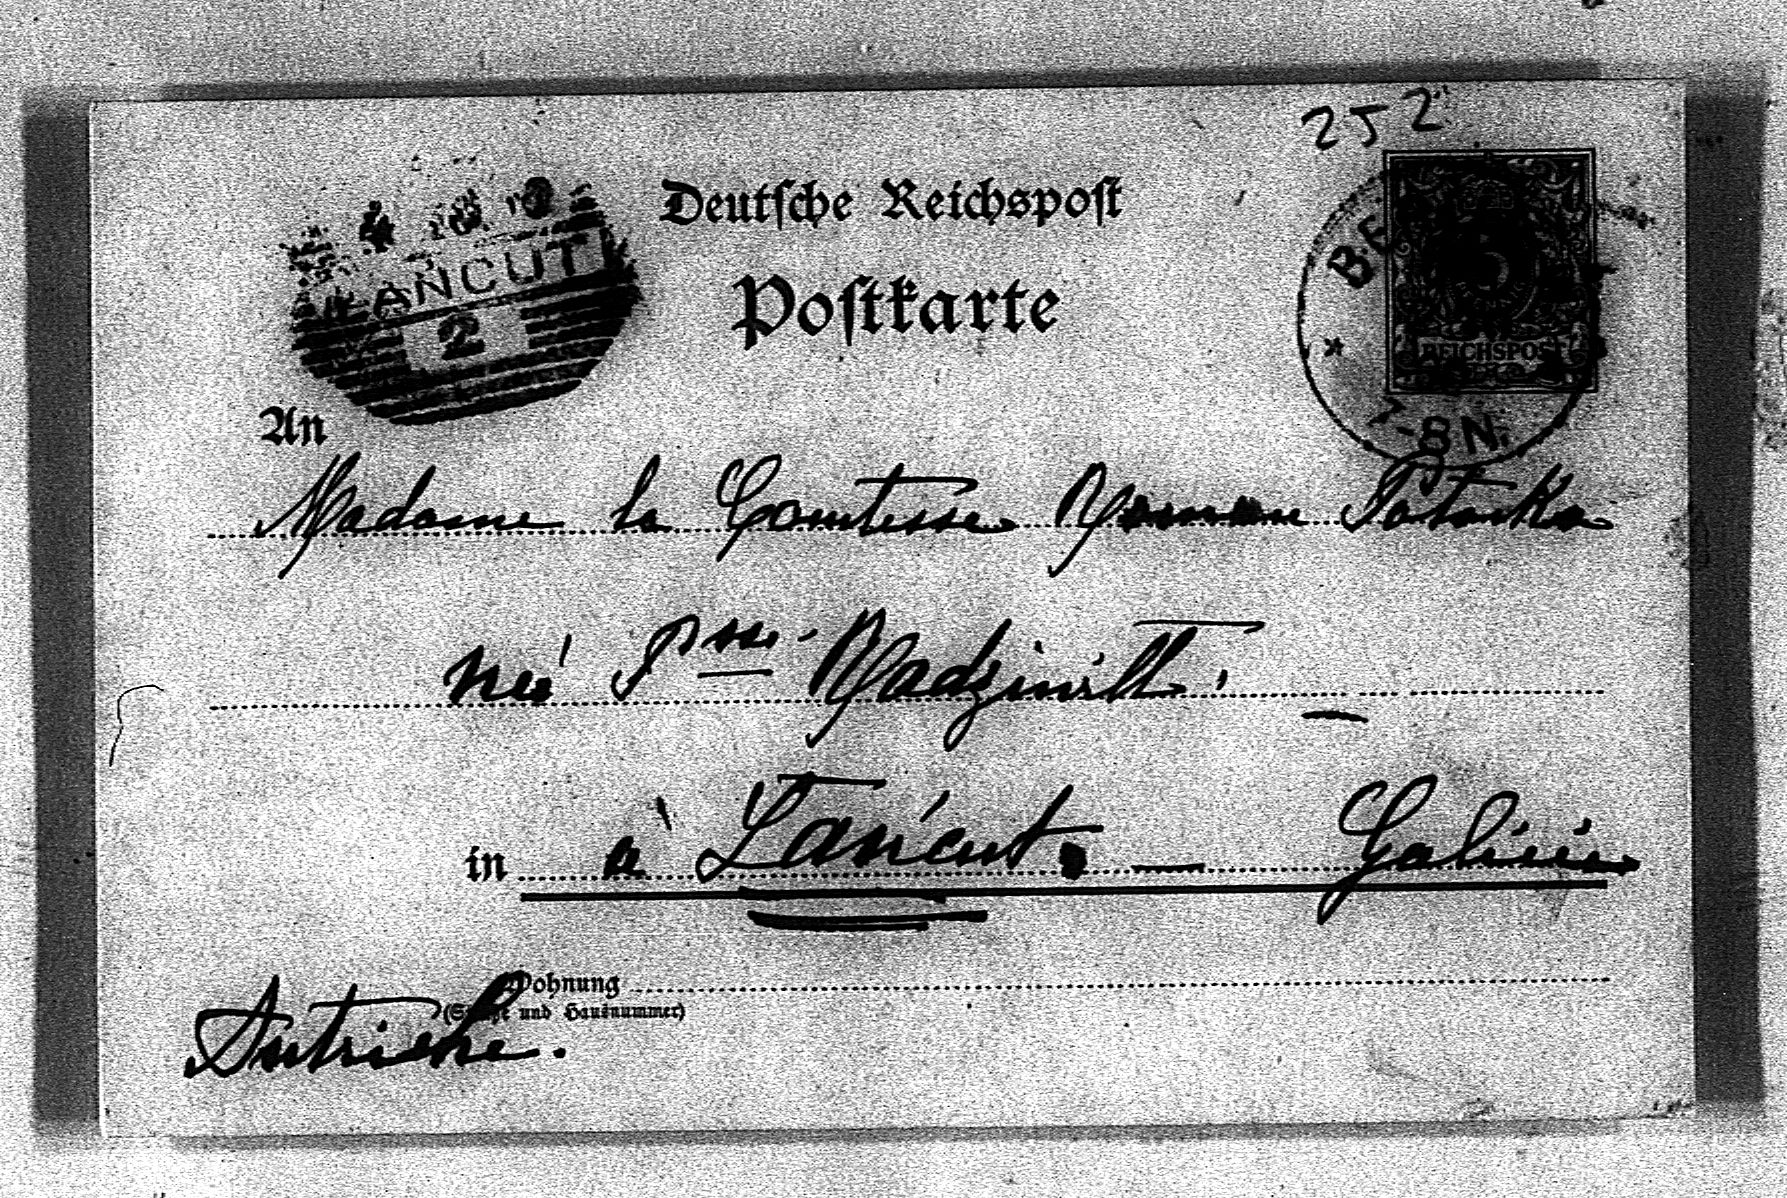 252
Deutsche Reichspost
ŁAŃCUT
2
Postkarte
5
PFENNIG
REICHSPOST
7-8N.
An
Madame la Comtesse Roman Potocka
née Psse. Radziwill.
in à Łańcut. — Galicie
Wohnung
(Straße und Hausnummer)
Autriche.